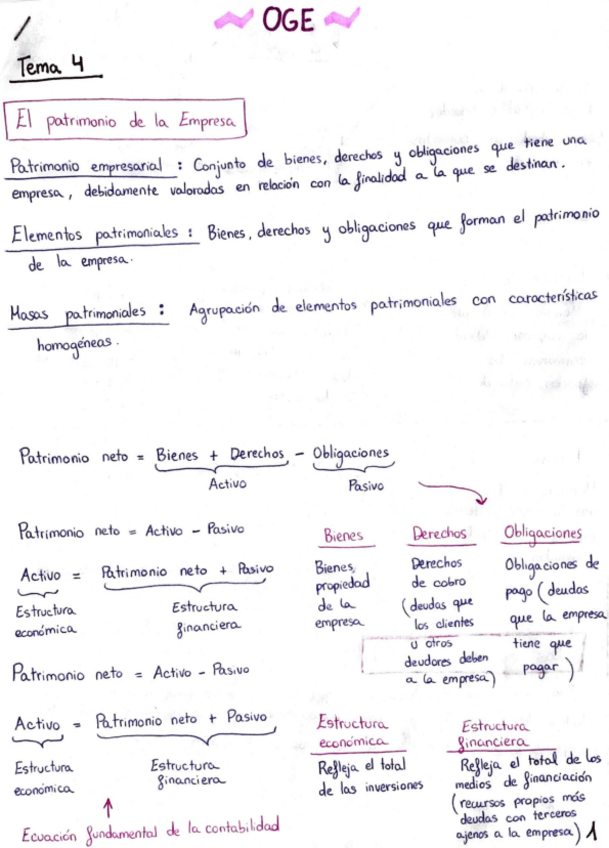 OGE
Tema 4
El patrimonio de la Empresa
Patrimonio empresarial : Conjunto de bienes, derechos y obligaciones que tiene una
empresa, debidamente valoradas en relación con la finalidad a la que se destinan.
Elementos patrimoniales : Bienes, derechos y obligaciones que forman el patrimonio
de la empresa.
Masas patrimoniales : Agrupación de elementos patrimoniales con características
homogéneas.
Patrimonio neto = Bienes + Derechos - Obligaciones
Activo Pasivo
Patrimonio neto = Activo - Pasivo
Activo = Patrimonio neto + Pasivo
Estructura económica
Estructura financiera
Patrimonio neto = Activo - Pasivo
Activo = Patrimonio neto + Pasivo
Estructura económica
Estructura financiera
Ecuación fundamental de la contabilidad
Bienes
Bienes,
propiedad
de la
empresa
Derechos
Derechos
de cobro
(deudas que
los clientes
u otros
deudores deben
a la empresa)
Obligaciones
Obligaciones de
pago (deudas
que la empresa
tiene que
pagar)
Estructura
económica
Refleja el total
de las inversiones
Estructura
financiera
Refleja el total de los
medios de financiación
(recursos propios más
deudas con terceros
ajenos a la empresa)
1